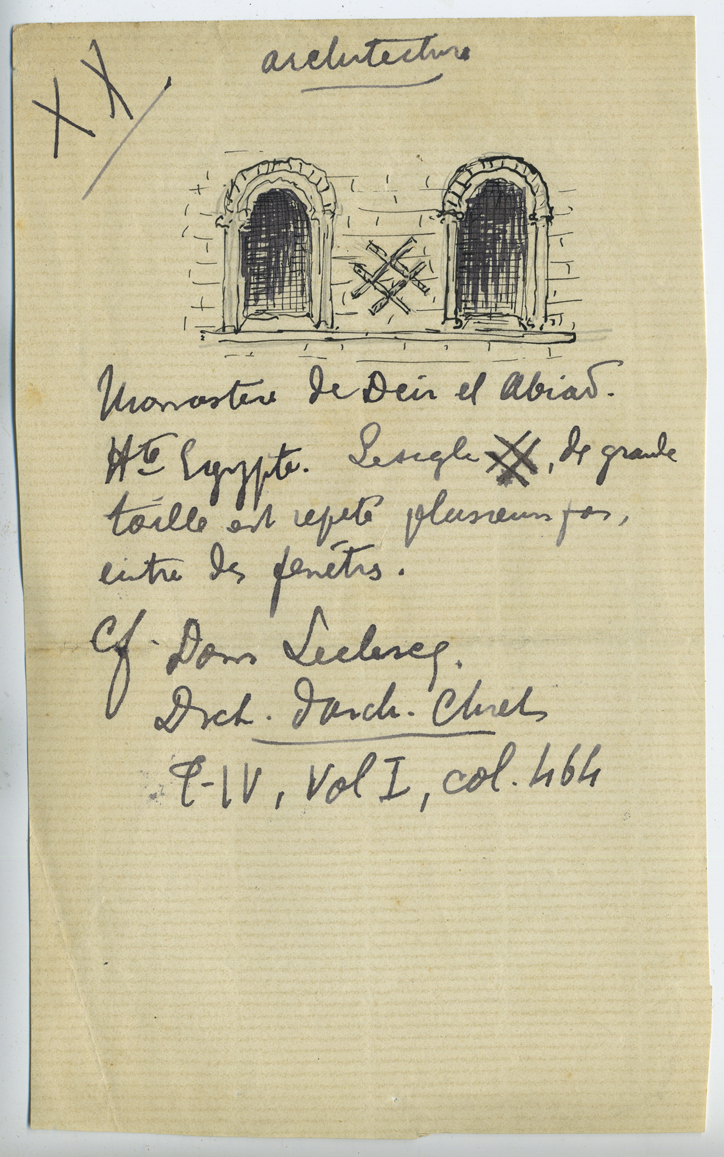 architecture
XX
Monastère de Deir el Abiad.
Hte Egypte. Le sigle XX, de grande
taille est répété plusieurs fois,
entre des fenêtres.
Cf. Dom Leclercq.
Dict. d'arch. Chret.
T-IV, Vol I, col. 464